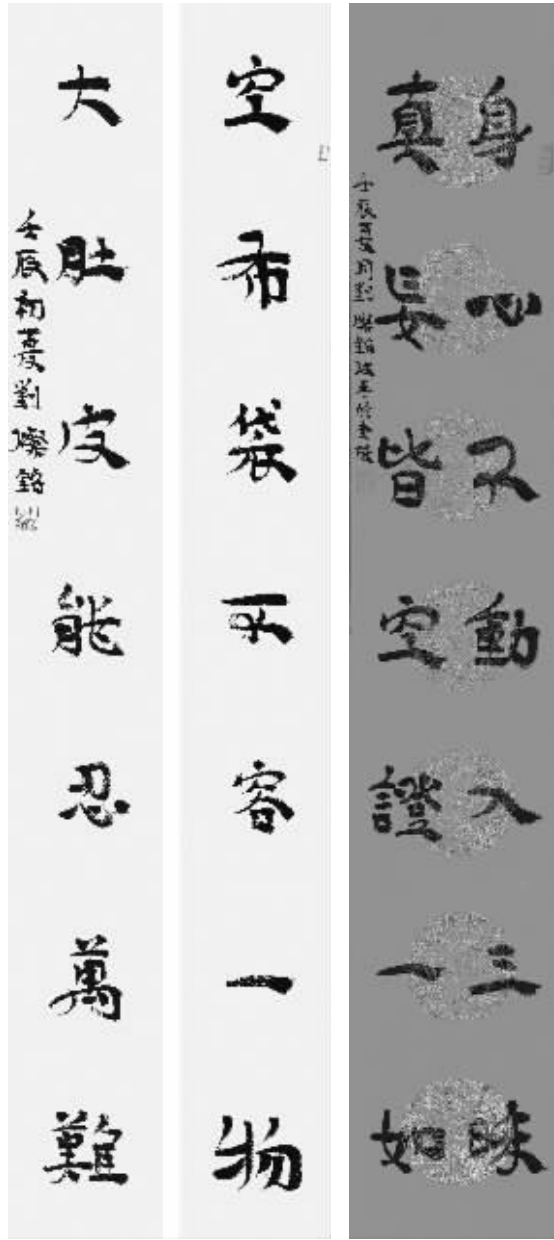 身心不動入三昧
真妄皆空證一如
空布袋不容一物
大肚皮能忍萬難
壬辰初夏劉燦銘